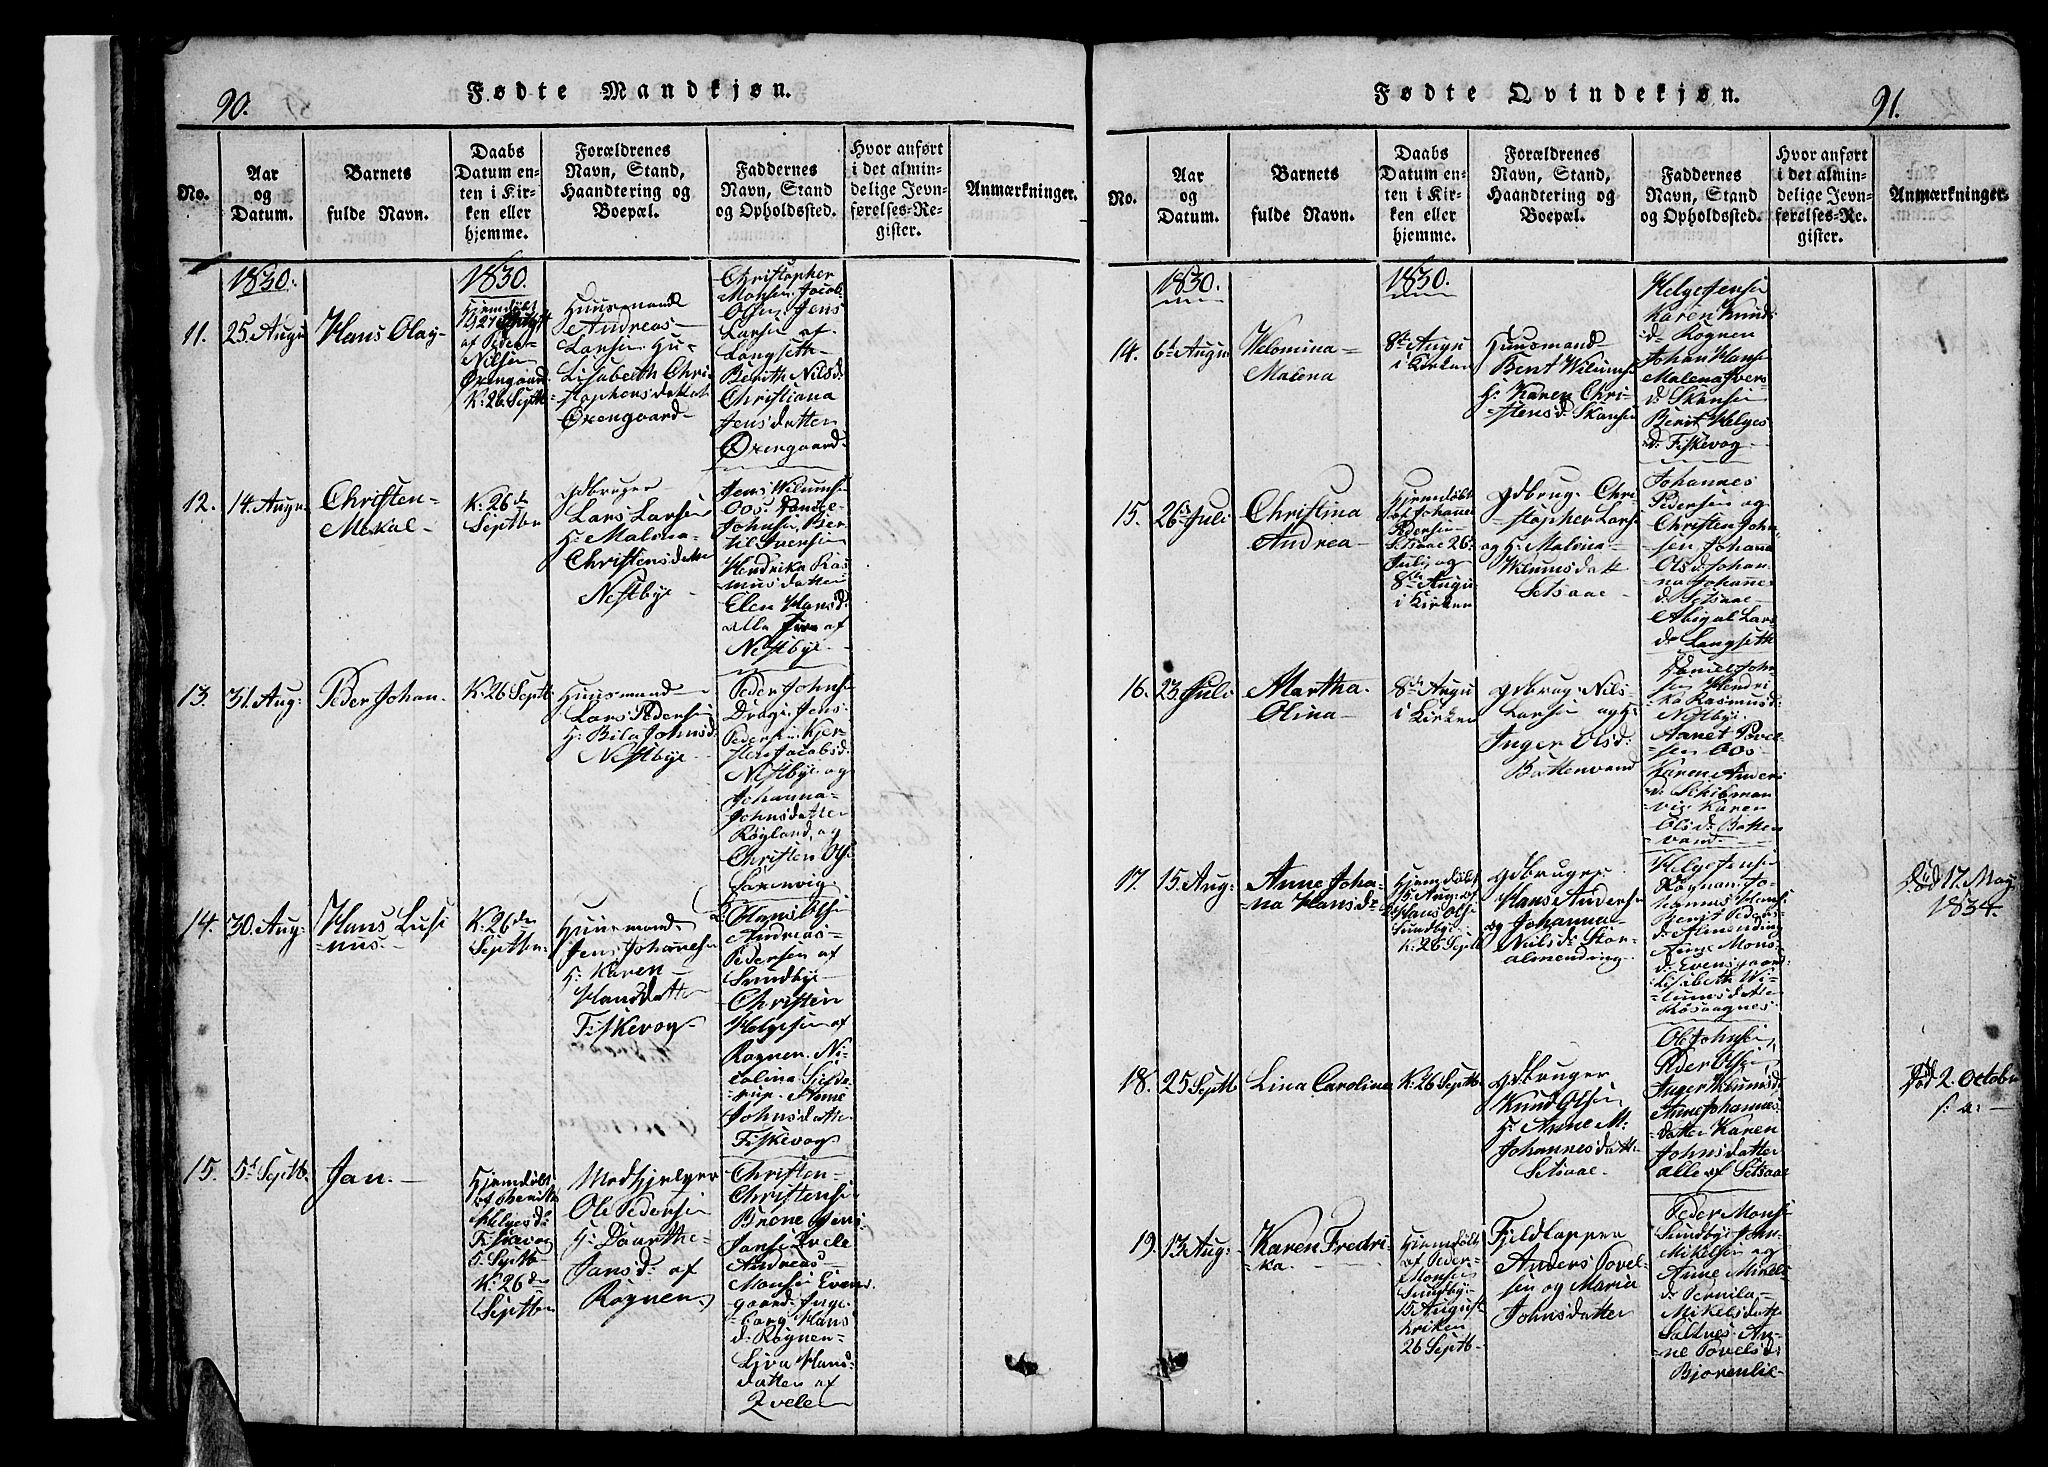 90.
Fødte Mandkjøn.
No.
Aar
og
Datum.
Barnets
fulde Navn.
Daabs
Datum en-
ten i Kir-
ken eller
hjemme.
Forældrenes
Navn, Stand,
Haandtering og
Boepæl.
Faddernes
Navn, Stand
og Opholdssted.
Hvor anført
i det almin-
delige Jevn-
førelses-Re-
gister.
Anmærkninger.
1830.
1830.
11.
25. Augu
Hans Olay-
Hjemdøbt
af Peder
Nilsen
Øxengaard
K: 26 Septb-
Huusmand
Andreas
Larsen Hu-
Lisabeth Chri
stophersdatter
Øxengaard-
Christopher
Monsen Jacob
Olsen, Jens
Larsen af
Langseth-
Berith Nilsd:
Christiana
Jensdatter
Øxengaard-
12.
14. Augu
Christen-
Mekal-
K: 26de
Septbr
Gdbruger
Lars Larsen
H: Malena-
Christensdatter
Nestbye-
Jens Wilumsen
Oos. Daniel
Johnsen Ber
til Iversen
Hendrika Ras
musdatter
Elen Hansd:
alle af
Nestbye-
13.
31. Aug:
Peder Johan
K: 26 Septb-
Huusmand
Lars Pedersen
H: Johnsd
Nestbye
Peder Johns-
Jens
Pedersen Kjer-
sten Jacobsd:
Nestbye og
Johanna-
Johnsdatter
Røgland, og
Christen Ols-
Saxenvig
14.
30. Aug:
Hans Lusi
=nus-
K: 26de
Septbr-
Huusmand
Jens Johannesen
H: Karen-
Hansdatter
Fiskevog-
Hans Olsen
Andreas-
Pedersen af
Sundbye-
Christen
Helgesen af
Rognen. Ni-
colina
Johnsdatter
Fiskevog
15.
5te Septb.
Jan.-
Hjemdøbt
af
Helgesd:
Fiskevog
5. Septb
K: 26de
Septbr
Medhjelper
Ole Pedersen
H: Daarthe-
Jansd: af
Rognen.
Christen-
Christensen
Jens
Jansen Qvele
Andreas-
Monsen Evens
gaard. Inge-
borg Hans
d: Rognen-
Liva Hans-
datter af
Qvele
Fødte Qvindekjøn.
91.
No.
Aar
og
Datum.
Barnets
fulde Navn.
Daabs
Datum en-
ten i Kir-
ken eller
hjemme.
Forældrenes
Navn, Stand,
Haandtering og
Boepæl.
Faddernes
Navn, Stand
og Opholdssted.
Hvor anført
i det almin-
delige Jevn-
førelses-Re-
gister.
Anmærkninger.
1830.
1830.
14.
6te Augu
Welomina-
Malena
8de Augu
i Kirken
Huusmand
Bent Wilums
H: Karen Chri-
stensd: Skansen
Helge Jensen
Karen Knuds
d: Rognen
Johan Hans
Malena Ivers
d: Skansen
Berit Helges
d: Fiskevog-
15.
26de Juli
Christina
Andrea-
Hjemdøbt
af Johannes
Pedersen-
Setsaae 26
July og
8de Augu
i Kirken
Gdbrug: Chri-
stopher Larsen
og H: Malena-
Wilumsdatt
Setsaae-
Johannes
Pedersen og
Christen Johan-
sen Johana
Olsd: Johan-
na Johannes
d: Setsaae-
Abigal Lars
d: Langseth
16.
23de Juli
Martha.
Olina-
8de Augu
i Kirken
Gdbrug: Nils-
Larsen og H:
Inger Olsd:
Bottenvand
Daniel John-
sen Hendri
ka Rasmusd:
Nestbye.
Aanet Povel-
sen Oos-
Karen Anders
d: Skibman
vig Karen
Olsd: Botten
vand-
17.
15. Aug:
Anne Joha-
=na Hansd:
Hjemdøbt
15. August
Hans Olsen
Sundbye
K: 26 Septb
Gdbruger
Hans Andersen
og Johanna-
Nielsd: Stor-
almending-
Helge Jensen
Rognan. Jo-
Berit Peders-
d: Almending
Anne Mons-
d: Evensgaard
Lisabeth Wi-
lumsdatter
Død 17. May
1834.
18.
25 Septb
Lina Carolina
K: 26 Septb
Gdbruger
Knud Olsen,
H: Anne M-
Johannesdatter
Setsaae-
Ole Johnsen,
Peder Olsen
Inger Wilumsd:
Anne Johannes-
datter Karen
Johnsdatter
alle af Setsaae
Død 2. Octobr
s: a: -
19.
13. Aug:
Karen Fredri-
=ka-
Hjemdøbt
af Peder
Monsen
Sundby-
15 August
Kirken
26 Septb-
Fjeldlapper
Anders Povel-
sen og Maria
Johnsdatter
Peder Monsen
Sundby John
Mikelsen og
Anne Mikels
d: Pernila-
Mikelsdatt
Saltnes. An-
ne Povelsd:
Bjørnlie-